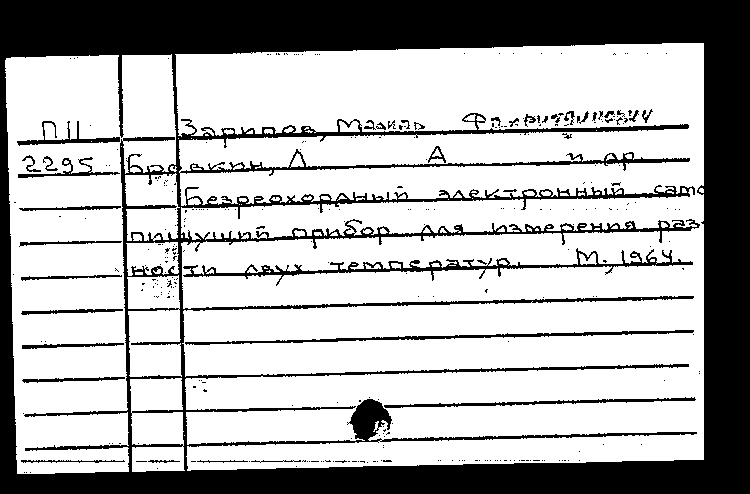 П11 Зарипов, Мадиль
2295 Бровкин, Л А и др.
Безреохордный электронный само
пишущий прибор для измерения раз-
ности двух температур. М., 1964.